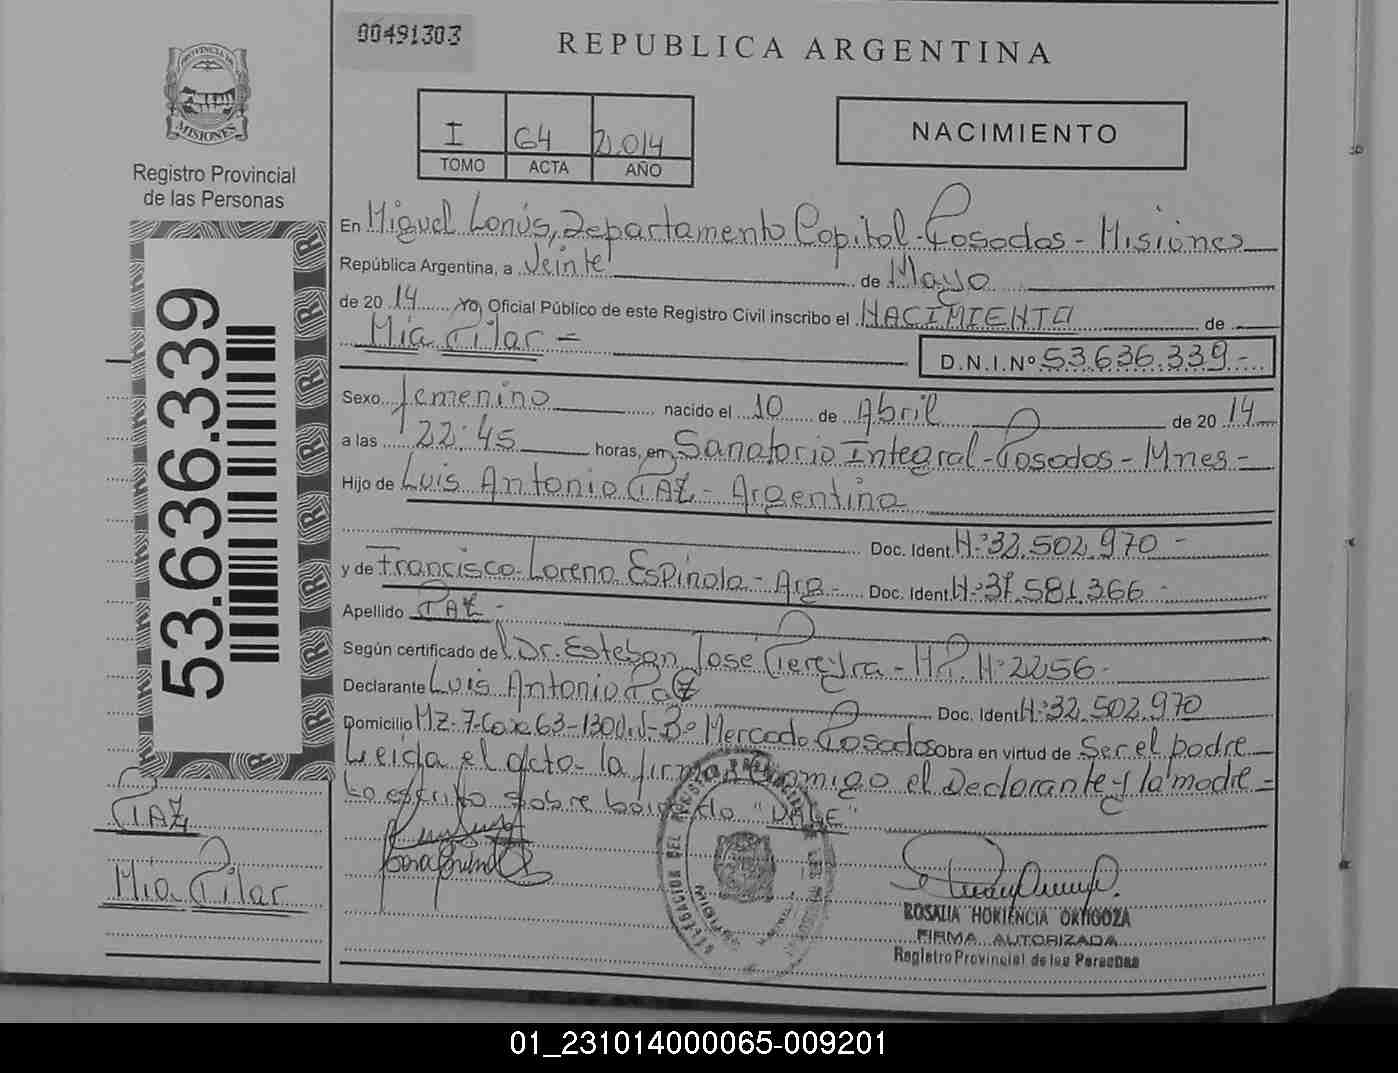 00491303
REPUBLICA ARGENTINA
PROVINCIA DE
MISIONES
Registro Provincial
de las Personas
I 64 2.014
TOMO ACTA AÑO
NACIMIENTO
En Miguel Lanús, Departamento Capital - Posadas - Misiones
República Argentina, a Veinte de Mayo
de 2014 yo, Oficial Público de este Registro Civil inscribo el NACIMIENTO de
Mía Pilar =
D.N.I.Nº 53.636.339-
Sexo Femenino nacido el 10 de Abril de 2014
a las 22:45 horas, en Sanatorio Integral - Posadas - Mnes -
Hijo de Luis Antonio PAZ - Argentino
Doc. Ident. Nº 32.502.970 -
y de Francisca Lorena Espínola - Arg - Doc. Ident. Nº 37.581.366 -
Apellido PAZ -
Según certificado del Dr. Esteban José Pereyra - M.P. Nº 2256 -
Declarante Luis Antonio Paz Doc. Ident. Nº 32.502.970
Domicilio Mz-7-Casa 63-130 Viv-Bº Mercado Posadas obra en virtud de Ser el padre
Leída el acta - la firman conmigo el Declarante y la madre =
Lo escrito sobre borrado "VALE"
53.636.339
PAZ
Mía Pilar
ROSALIA HORTENCIA ORTIGOZA
FIRMA AUTORIZADA
Registro Provincial de las Personas
01_231014000065-009201